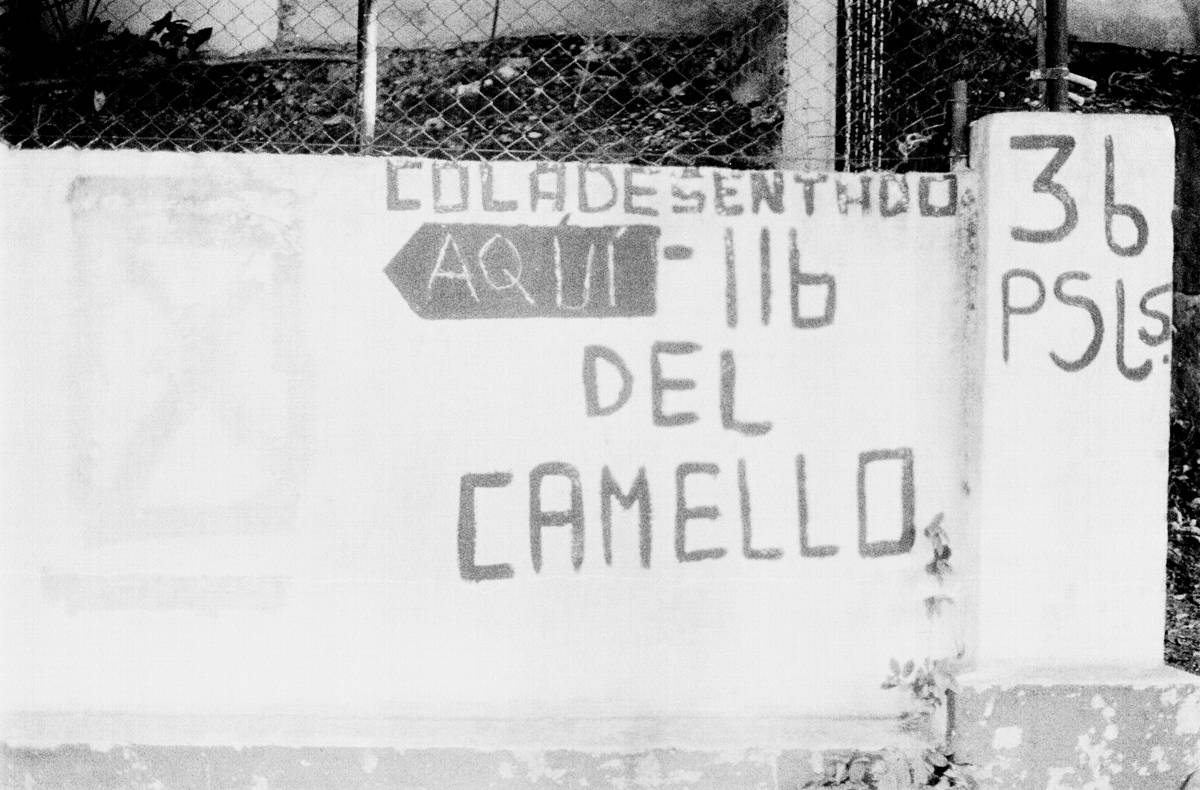 COLA DE SENTADO
AQUÍ - 116
DEL
CAMELLO
36
PSJS.